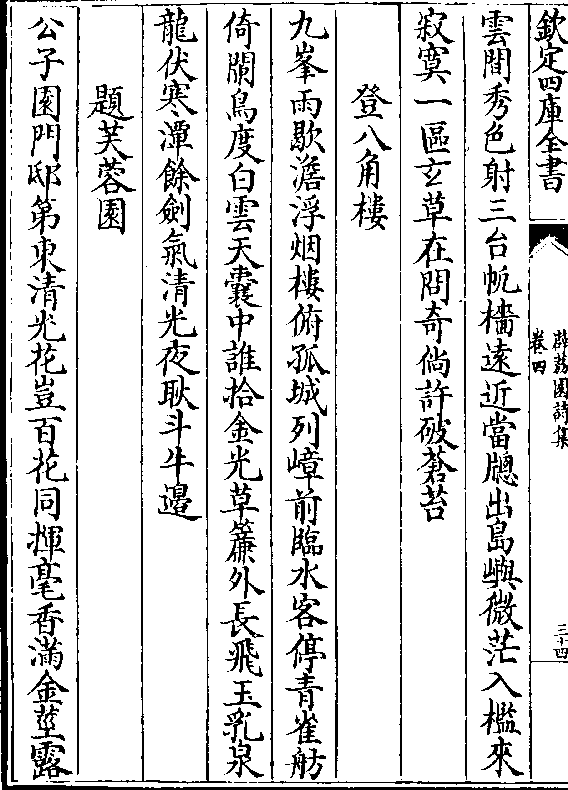 欽定四庫全書
薜荔園詩集
卷四
三十四
雲間秀色射三台帆檣遠近當牕出島嶼微茫入檻來
寂寞一區玄草在問奇倘許破蒼苔
登八角樓
九峯雨歇澹浮烟樓俯孤城列嶂前臨水客停青雀舫
倚闌鳥度白雲天囊中誰拾金光草簾外長飛玉乳泉
龍伏寒潭餘劍氣清光夜耿斗牛邊
題芙蓉園
公子園門邸第東清光花豈百花同揮毫香滿金莖露